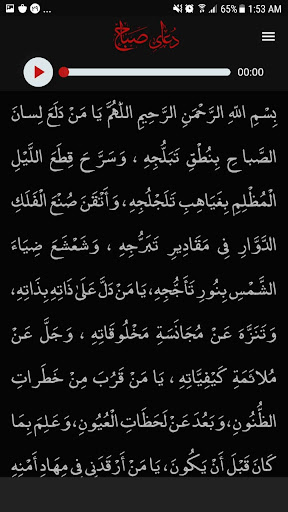 65% 1:53 AM
دعای صباح
00:00
بِسْمِ اللّهِ الرَّحْمٰنِ الرَّحِيمِ اَللّٰهُمَّ يَا مَنْ دَلَعَ لِسانَ
الصَّباحِ بِنُطْقِ تَبَلُّجِهِ ، وَسَرَّحَ قِطَعَ اللَّيْلِ
الْمُظْلِمِ بِغَياهِبِ تَلَجْلُجِهِ ، وَأَتْقَنَ صُنْعَ الْفَلَكِ
الدَّوَّارِ فِى مَقَادِيرِ تَبَرُّجِهِ ، وَشَعْشَعَ ضِيَاءَ
الشَّمْسِ بِنُورِ تَأَجُّجِهِ، يَا مَنْ دَلَّ عَلىٰ ذَاتِهِ بِذَاتِهِ،
وَتَنَزَّهَ عَنْ مُجَانَسَةِ مَخْلُوقَاتِهِ ، وَجَلَّ عَنْ
مُلائَمَةِ كَيْفِيَّاتِهِ ، يَا مَنْ قَرُبَ مِنْ خَطَراتِ
الظُّنُونِ، وَبَعُدَ عَنْ لَحَظَاتِ الْعُيُونِ، وَعَلِمَ بِمَا
كَانَ قَبْلَ أَنْ يَكُونَ، يَا مَنْ أَرْقَدَنِى فِى مِهَادِ أَمْنِهِ